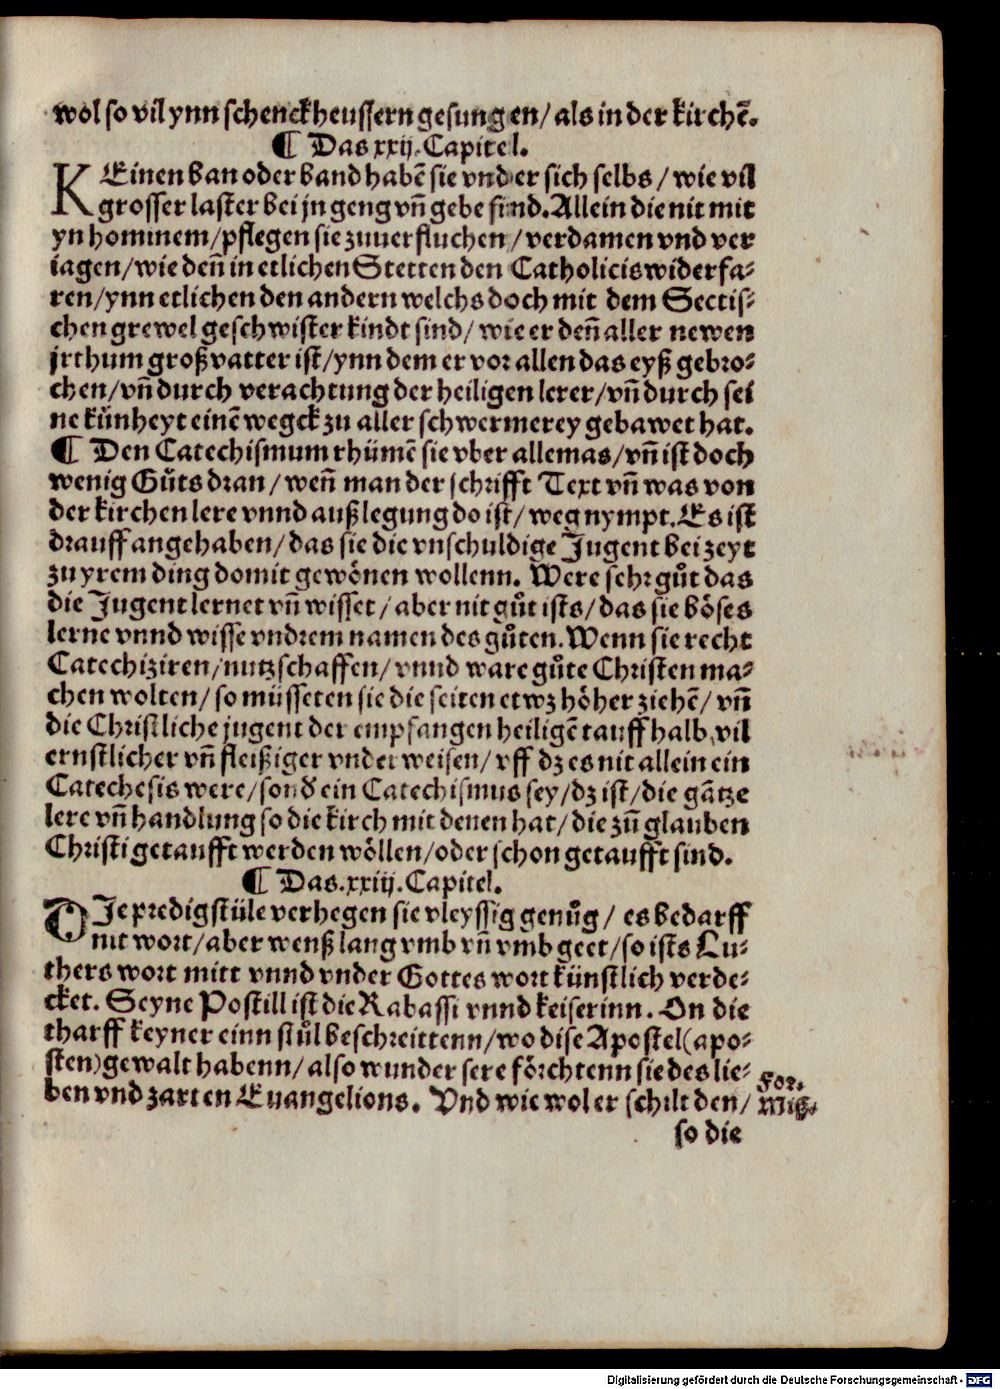 wol so vil ynn schenckheussern gesungen/ als in der kirchẽ.
¶ Das xxij. Capitel.
KEinen ban oder band habẽ sie vnder sich selbs/ wie vil
grosser laster bei jn geng vñ gebe sind. Allein die nit mit
yn hominem/ pflegen sie zuuerfluchen/ verdamen vnd ver
iagen/ wie deñ in etlichen Stetten den Catholicis widerfa⸗
ren/ ynn etlichen den andern welchs doch mit dem Sectis⸗
chen grewel geschwister kindt sind/ wie er deñ aller newen
jrthum großvatter ist/ ynn dem er vor allen das eyß gebro⸗
chen/ vñ durch verachtung der heiligen lerer/ vñ durch sei
ne kůnheyt einẽ wegck zu aller schwermerey gebawet hat.
¶ Den Catechismum rhümẽ sie vber alle mas/ vñ ist doch
wenig Gůts dran/ weñ man der schrifft Text vñ was von
der kirchen lere vnnd außlegung do ist/ weg nympt. Es ist
drauff angehaben/ das sie die vnschuldige Jugent bei zeyt
zu yrem ding domit gewönen wollenn. Were sehr gůt das
die Jugent lernet vñ wisset/ aber nit gůt ists/ das sie böses
lerne vnnd wisse vndrem namen des gůten. Wenn sie recht
Catechiziren/ nutz schaffen/ vnnd ware gůte Christen ma⸗
chen wolten/ so müsseten sie die seiten etwz höher ziehẽ/ vñ
die Christliche jugent der empfangen heiligẽ tauff halb, vil
ernstlicher vñ fleißiger vnderweisen/ vff dz es nit allein ein
Catechesis were/ sonđ ein Catechismus sey/ dz ist/ die gãtze
lere vñ handlung so die kirch mit denen hat/ die zũ glauben
Christi getaufft werden wöllen/ oder schon getaufft sind.
¶ Das. xxiij. Capitel.
DJe predigstüle verhegen sie vleyssig genůg/ es bedarff
nit wort/ aber wenß lang vmb vñ vmb geet/ so ists Lu⸗
thers wort mitt vnnd vnder Gottes wort künstlich verde⸗
cket. Seyne Postill ist die Rabassi vnnd keiserinn. On die
tharff keyner einn stůl beschreittenn/ wo dise Apostel (apo⸗
sten) gewalt habenn/ also wunder sere förchtenn sie des lie⸗
ben vnd zarten Euangelions. Vnd wie wol er schilt den/
For.
Miß.
so die
Digitalisierung gefördert durch die Deutsche Forschungsgemeinschaft - DFG